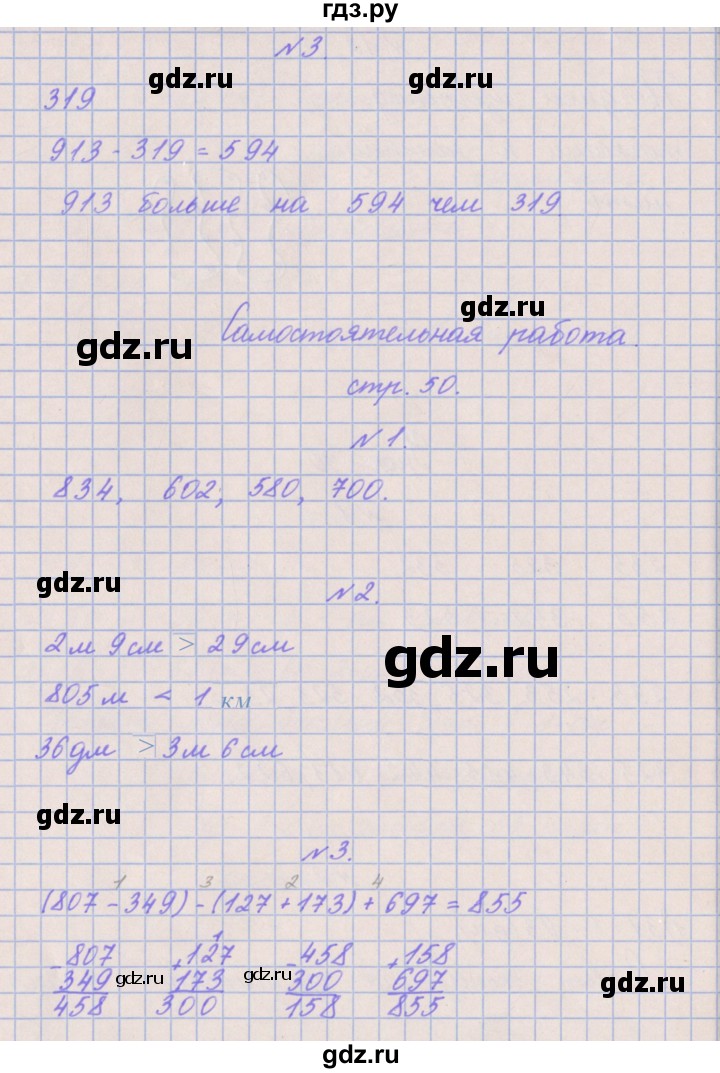 гдз.ру
№3.
gdz.ru gdz.ru
319
913 - 319 = 594
913 больше на 594 чем 319
gdz.ru
gdz.ru
Самостоятельная работа.
стр. 50.
№1.
834, 602, 580, 700.
gdz.ru
№2.
2м 9см > 29см
gdz.ru
805м < 1 км
36дм > 3м 6см
gdz.ru
№3.
1 3 2 4
(807 - 349) - (127 + 173) + 697 = 855
1
- 807 + 127 - 458 + 158
349 gdz.ru 173 gdz.ru 300 697 gdz.ru
458 300 158 855
gdz.ru